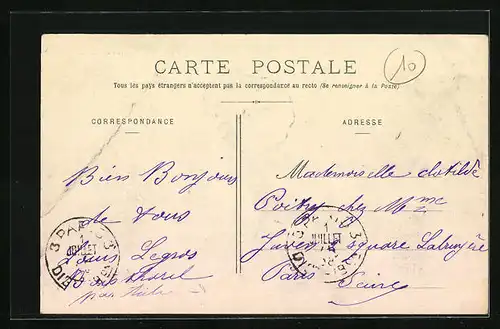 10
CARTE POSTALE
Tous les pays étrangers n'acceptent pas la correspondance au recto (Se renseigner à la Poste)
CORRESPONDANCE
ADRESSE
Bien Bonjour
de Vous
Louis Legros
Mademoiselle Clotilde
Poitry chez Mme
square Labruyère
Paris Seine
3 PARIS 3
JUILLET
JUILLET